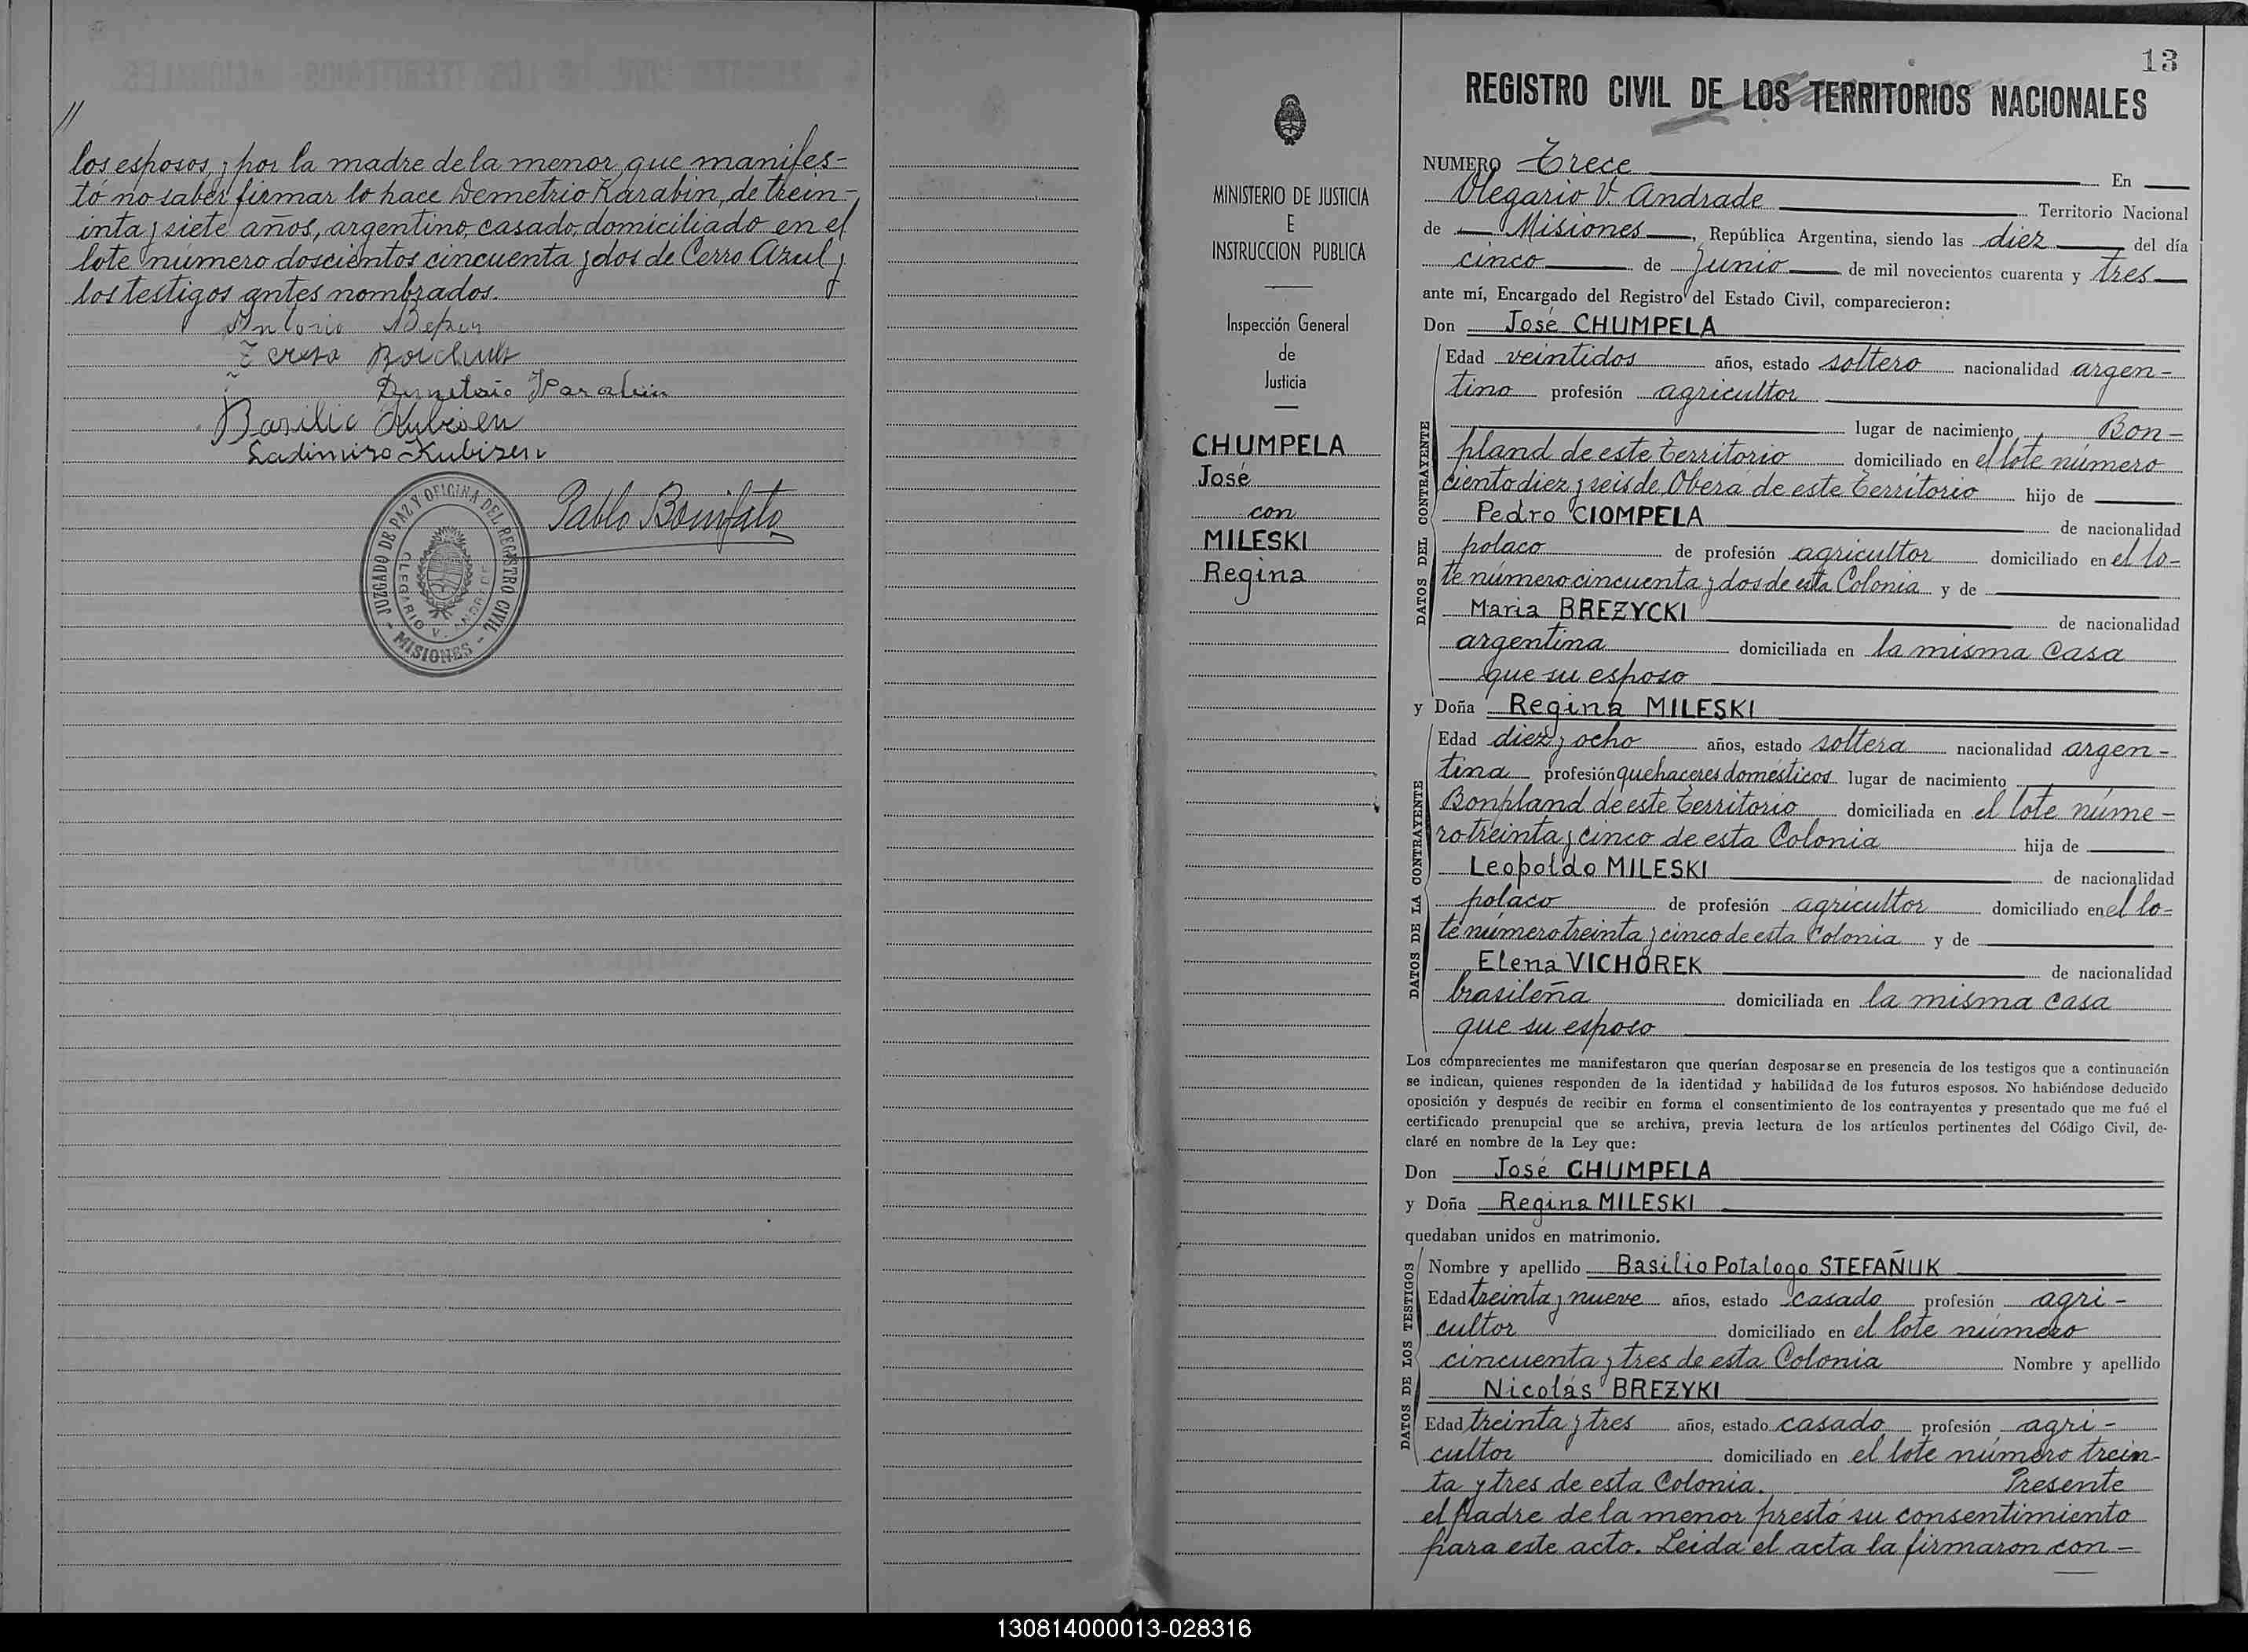 //
los esposos, y por la madre de la menor que manifes-
tó no saber firmar lo hace Demetrio Karabin, de trein-
inta y siete años, argentino, casado, domiciliado en el
lote número doscientos cincuenta y dos de Cerro Azul y
los testigos antes nombrados.
Antonio
Teresa
Demetrio Karabin
Basilio Kubisen
Ladimiro Kubisen
Pablo Bonifato
JUZGADO DE PAZ Y OFICINA DEL REGISTRO CIVIL
OLEGARIO V. ANDRADE
- MISIONES -
MINISTERIO DE JUSTICIA
E
INSTRUCCION PUBLICA
Inspección General
de
Justicia
CHUMPELA
José
con
MILESKI
Regina
13
REGISTRO CIVIL DE LOS TERRITORIOS NACIONALES
NUMERO Trece En
Olegario V. Andrade Territorio Nacional
de Misiones, República Argentina, siendo las diez del día
cinco de Junio de mil novecientos cuarenta y tres
ante mí, Encargado del Registro del Estado Civil, comparecieron:
Don José CHUMPELA
DATOS DEL CONTRAYENTE
Edad veintidos años, estado soltero nacionalidad argen-
tino profesión agricultor
lugar de nacimiento Bon-
pland de este Territorio domiciliado en el lote número
ciento diez y seis de Obera de este Territorio hijo de
Pedro CIOMPELA de nacionalidad
polaco de profesión agricultor domiciliado en el lo-
te número cincuenta y dos de esta Colonia y de
Maria BREZYCKI de nacionalidad
argentina domiciliada en la misma casa
que su esposo
y Doña Regina MILESKI
DATOS DE LA CONTRAYENTE
Edad diez y ocho años, estado soltera nacionalidad argen-
tina profesión quehaceres domésticos lugar de nacimiento
Bonpland de este Territorio domiciliada en el lote núme-
ro treinta y cinco de esta Colonia hija de
Leopoldo MILESKI de nacionalidad
polaco de profesión agricultor domiciliado en el lo-
te número treinta y cinco de esta Colonia y de
Elena VICHOREK de nacionalidad
brasileña domiciliada en la misma casa
que su esposo
Los comparecientes me manifestaron que querían desposarse en presencia de los testigos que a continuación
se indican, quienes responden de la identidad y habilidad de los futuros esposos. No habiéndose deducido
oposición y después de recibir en forma el consentimiento de los contrayentes y presentado que me fué el
certificado prenupcial que se archiva, previa lectura de los artículos pertinentes del Código Civil, de-
claré en nombre de la Ley que:
Don José CHUMPELA
y Doña Regina MILESKI
quedaban unidos en matrimonio.
DATOS DE LOS TESTIGOS
Nombre y apellido Basilio Potalogo STEFAÑUK
Edad treinta y nueve años, estado casado profesión agri-
cultor domiciliado en el lote número
cincuenta y tres de esta Colonia Nombre y apellido
Nicolás BREZYKI
Edad treinta y tres años, estado casado profesión agri-
cultor domiciliado en el lote número trein-
ta y tres de esta Colonia. Presente
el padre de la menor prestó su consentimiento
para este acto. Leida el acta la firmaron con-
130814000013-028316